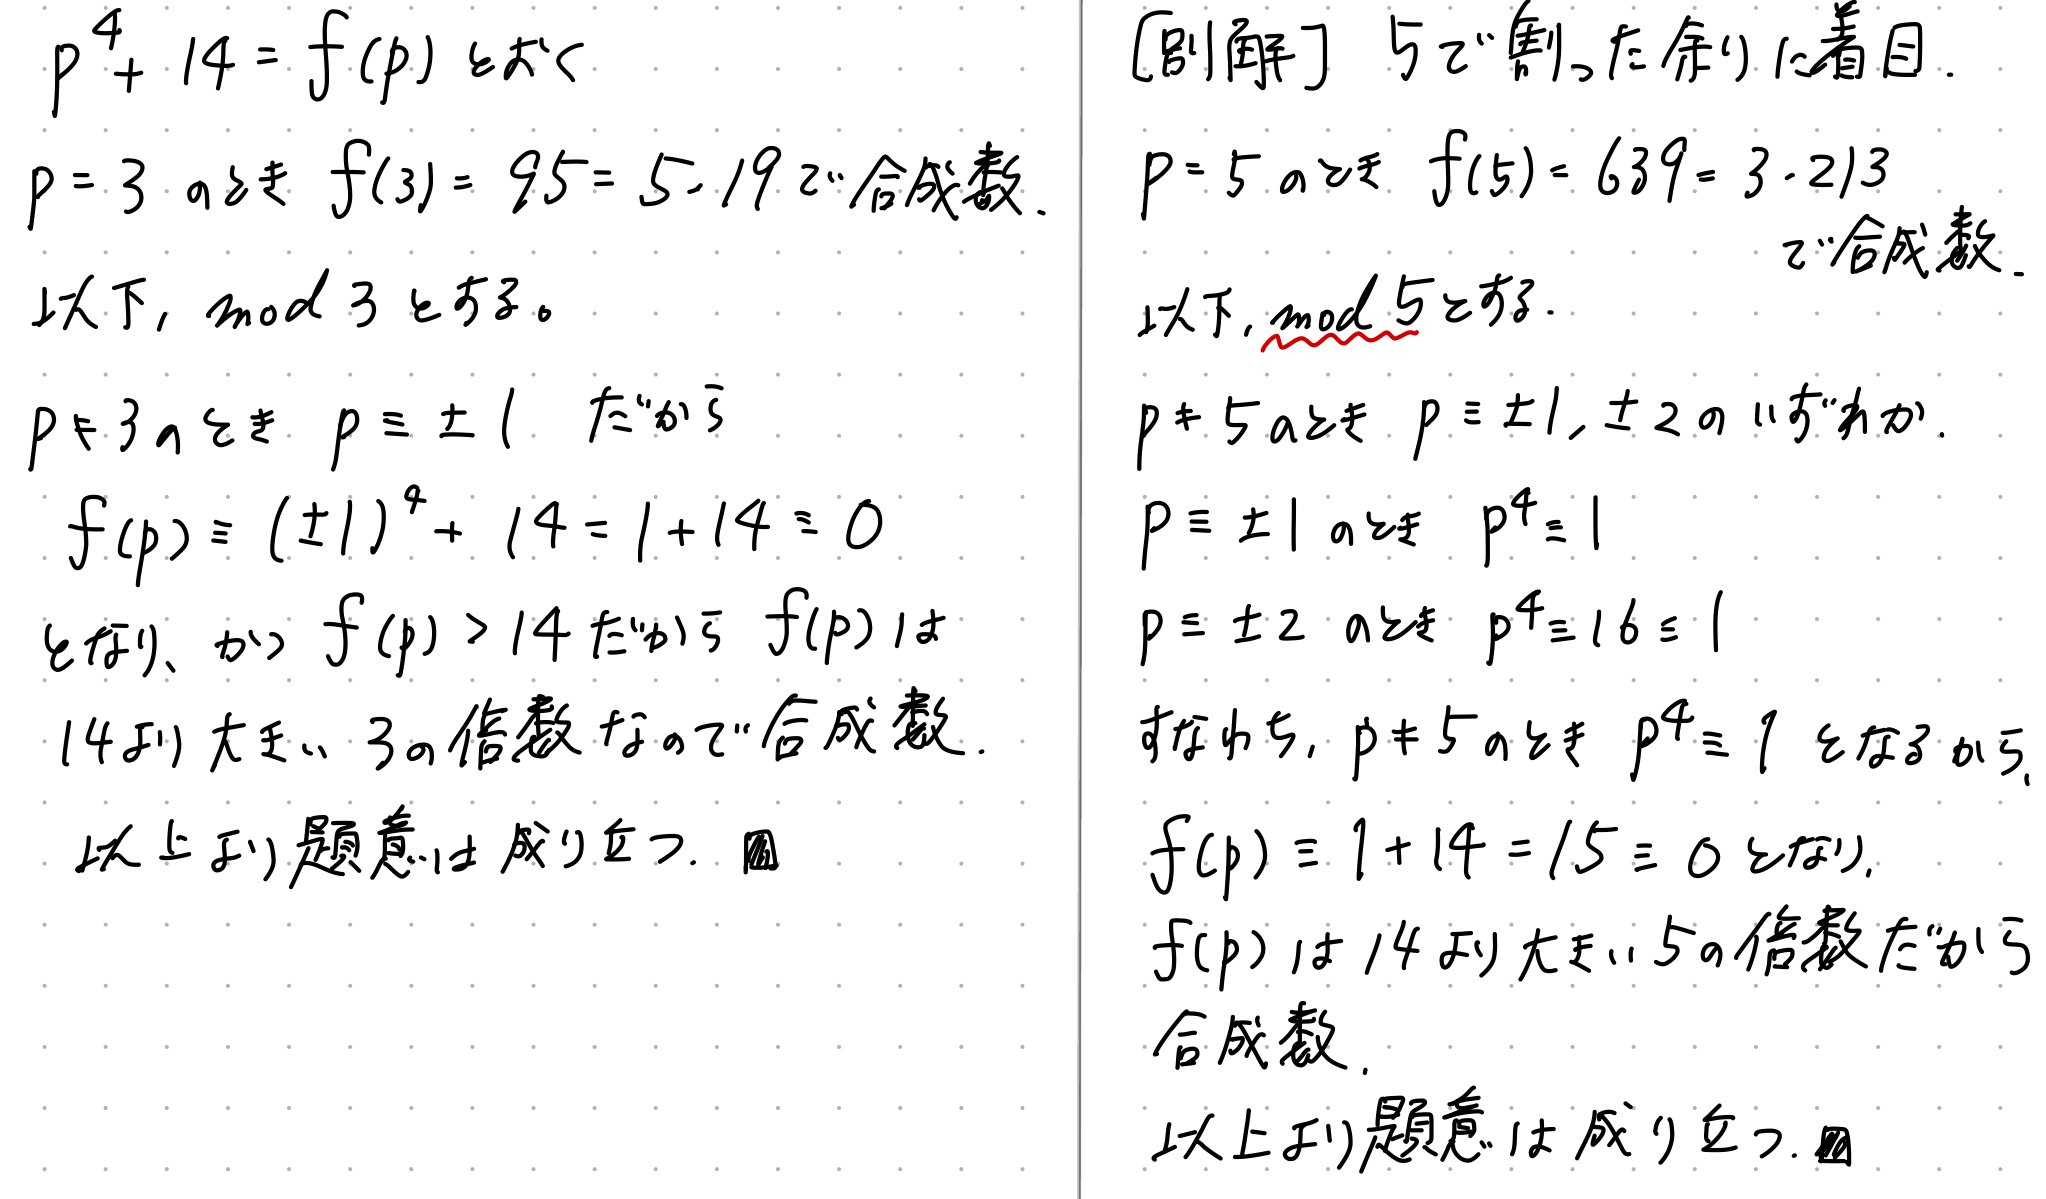 p⁴ + 14 = f(p) とおく
p = 3 のとき f(3) = 95 = 5・19 で合成数.
以下, mod 3 とする。
p ≠ 3 のとき p ≡ ±1 だから
f(p) ≡ (±1)⁴ + 14 = 1 + 14 ≡ 0
となり、かつ f(p) > 14 だから f(p) は
14より大きい 3の倍数なので合成数.
以上より題意は成り立つ. ▨
[別解] 5で割った余りに着目.
p = 5 のとき f(5) = 639 = 3・213
で合成数.
以下, mod 5とする.
p ≠ 5のとき p ≡ ±1, ±2 のいずれか.
p ≡ ±1 のとき p⁴ ≡ 1
p ≡ ±2 のとき p⁴ ≡ 16 ≡ 1
すなわち, p ≠ 5 のとき p⁴ ≡ 1 となるから,
f(p) ≡ 1 + 14 = 15 ≡ 0 となり,
f(p) は 14 より大きい 5の倍数だから
合成数.
以上より題意は成り立つ. ▨